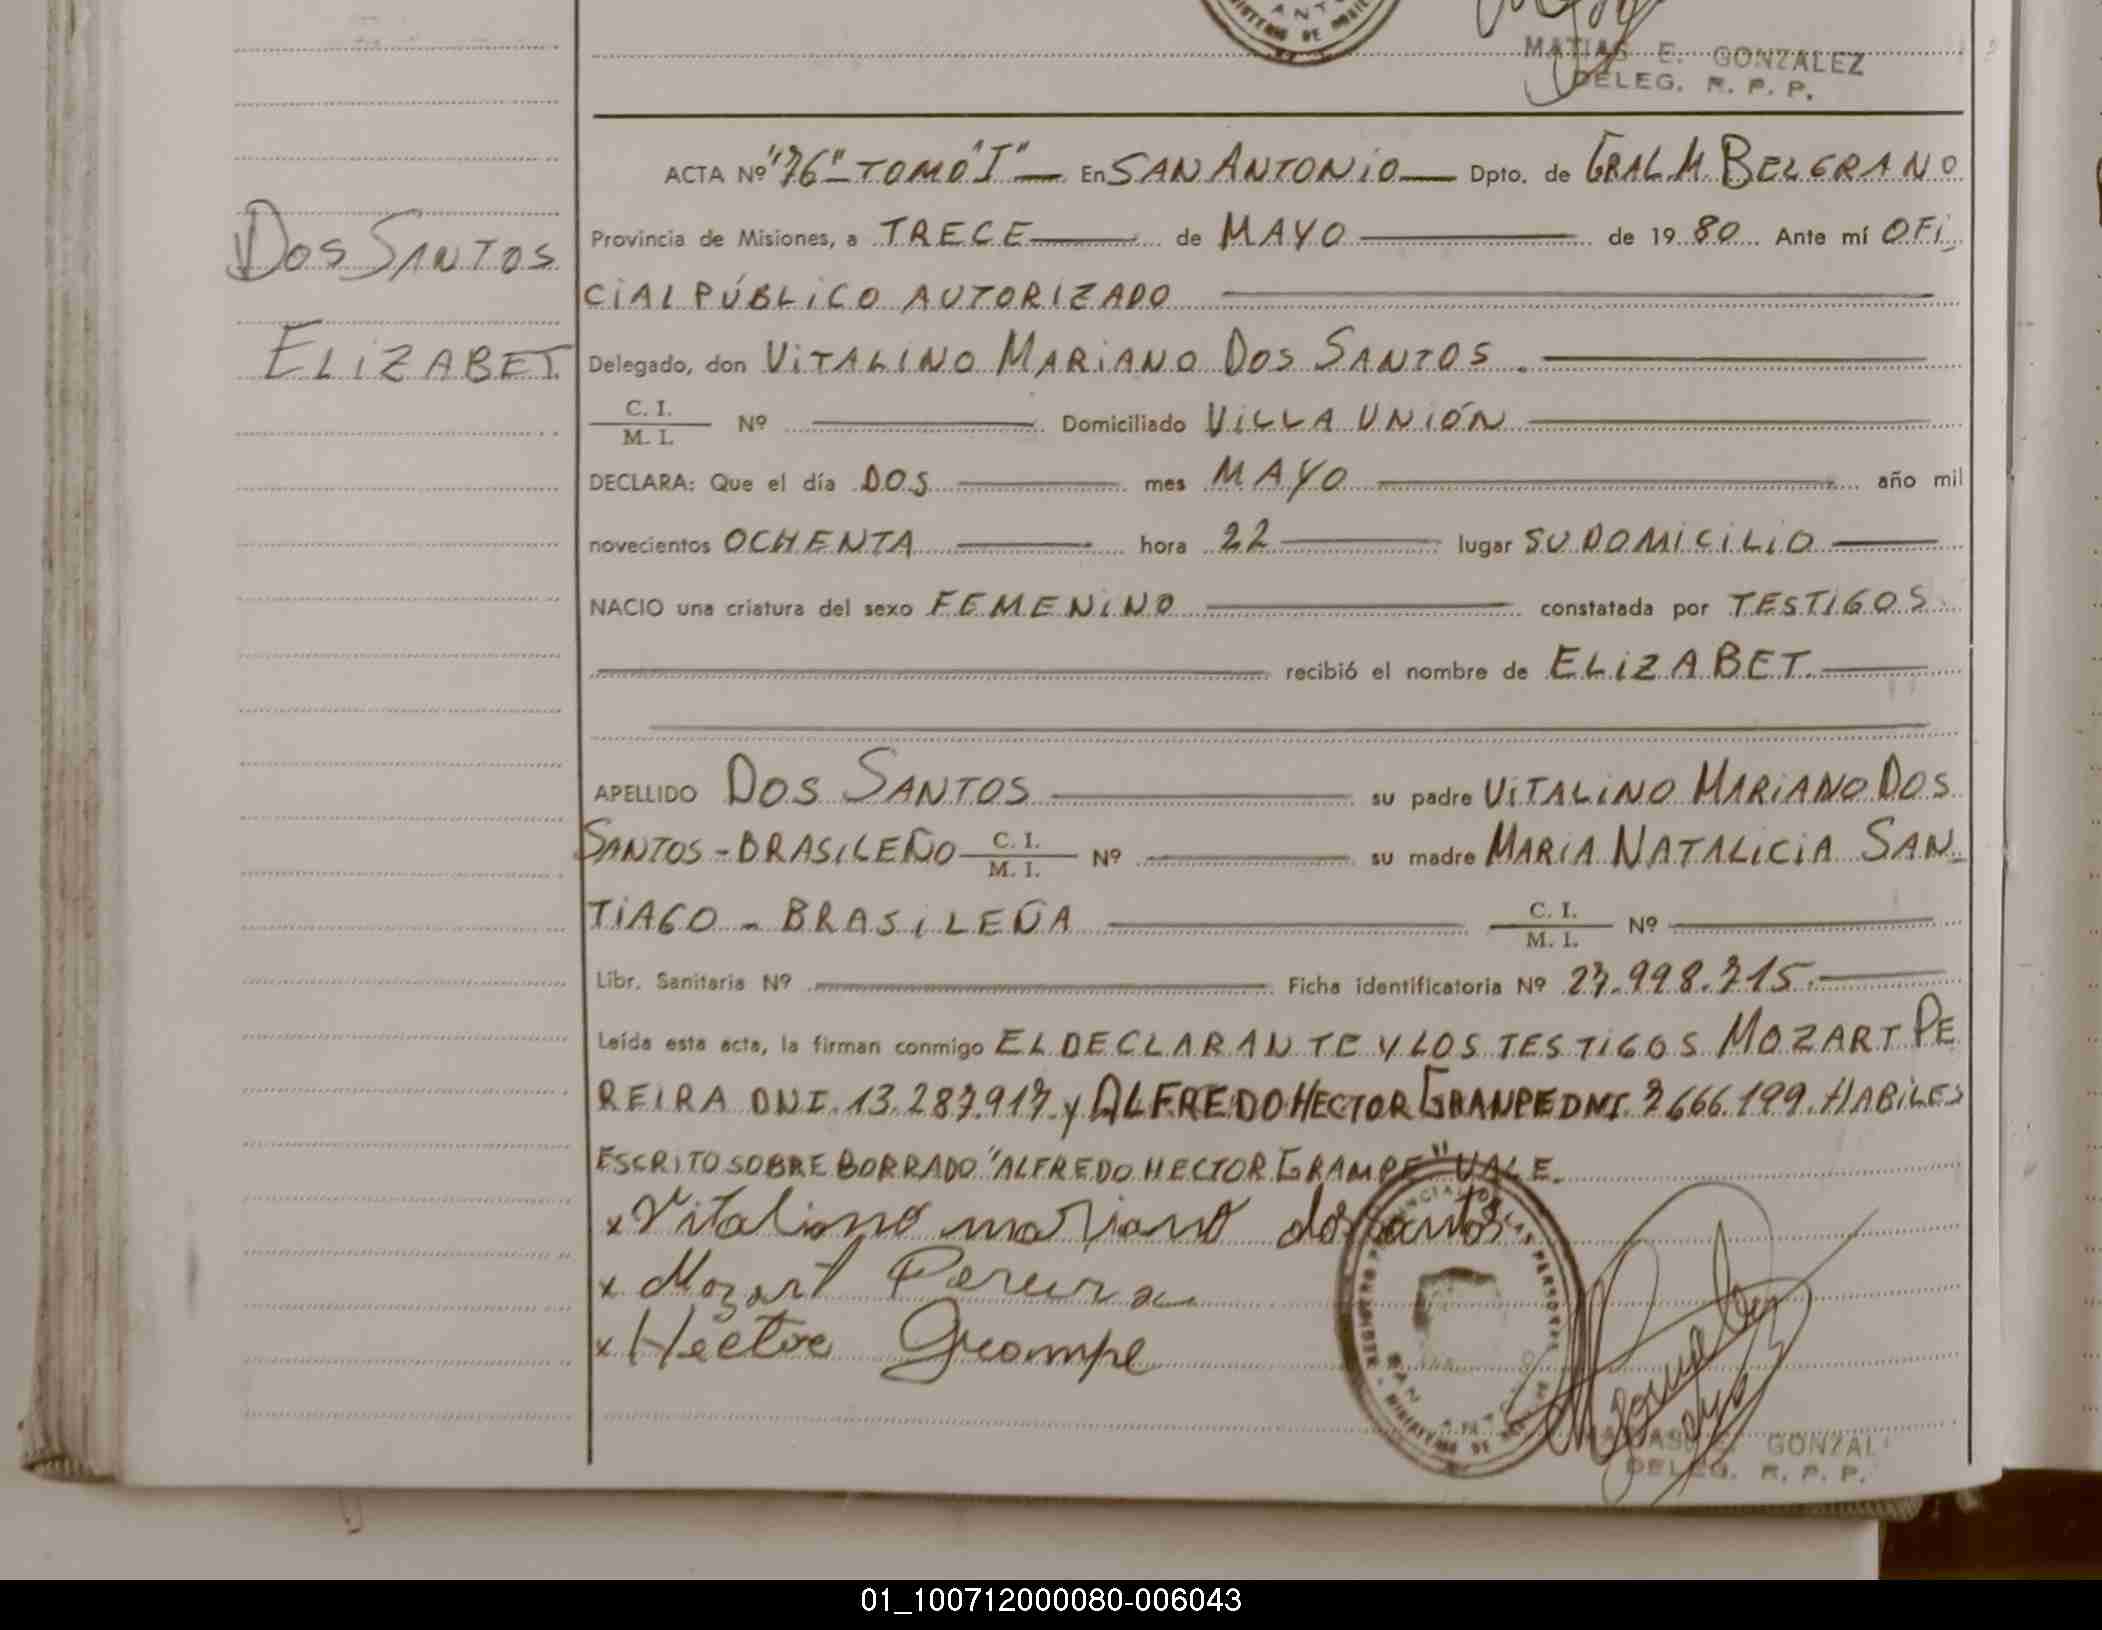 MATIAS E. GONZALEZ
DELEG. R. P. P.
ACTA Nº "76" TOMO "I" En SAN ANTONIO Dpto. de GRAL. M. BELGRANO
Provincia de Misiones, a TRECE de MAYO de 1980 Ante mí OFI
CIAL PÚBLICO AUTORIZADO
DOS SANTOS
ELIZABET
Delegado, don VITALINO MARIANO DOS SANTOS.
C. I.
M. I. Nº Domiciliado VILLA UNIÓN
DECLARA: Que el día DOS mes MAYO año mil
novecientos OCHENTA hora 22 lugar SU DOMICILIO
NACIO una criatura del sexo FEMENINO constatada por TESTIGOS
recibió el nombre de ELIZABET
APELLIDO DOS SANTOS su padre VITALINO MARIANO DOS
SANTOS - BRASILEÑO C. I. M. I. Nº su madre MARIA NATALICIA SAN
TIAGO - BRASILEÑA C. I. M. I. Nº
Libr. Sanitaria Nº Ficha identificatoria Nº 27.998.715.
Leída esta acta, la firman conmigo EL DECLARANTE Y LOS TESTIGOS MOZART PE
REIRA DNI. 13.287.917. y ALFREDO HECTOR GRANPE DNI. 7666.199. HABILES
ESCRITO SOBRE BORRADO "ALFREDO HECTOR GRAMPE" VALE.
x Vitaliano mariano dos santos
x Mozart Pereira
x Hector Grampe
GONZAL
DELEG. R. P. P.
01_100712000080-006043